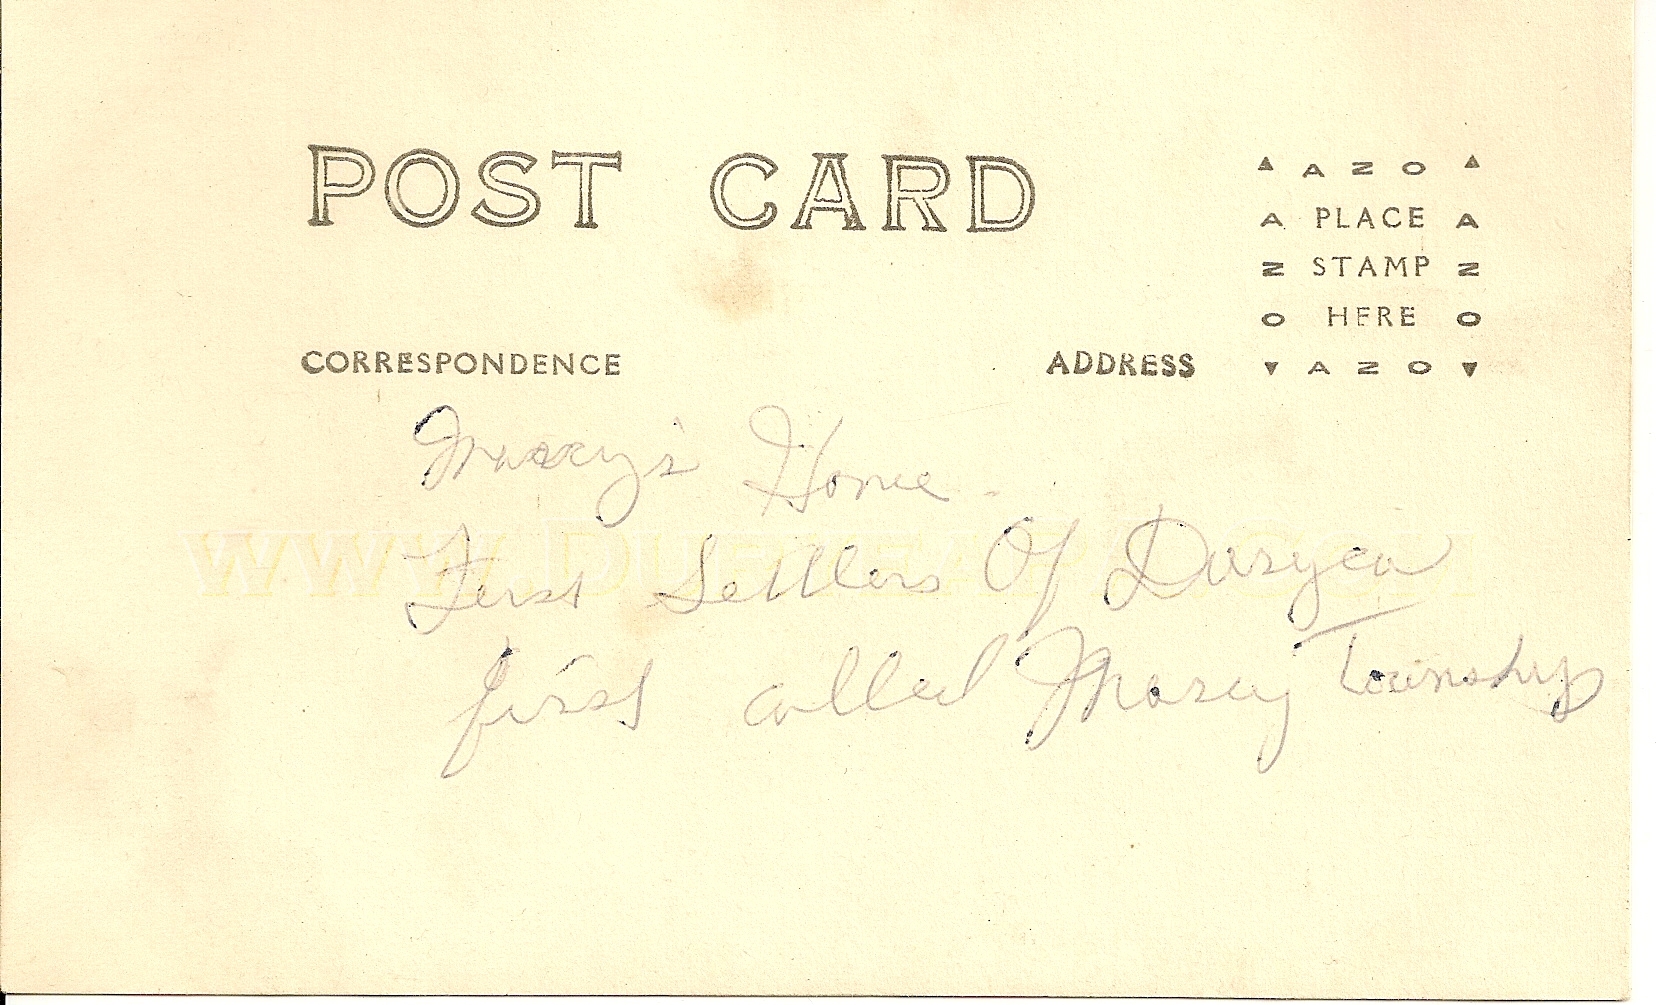 POST CARD
AZO
A PLACE A
N STAMP N
O HERE O
AZO
CORRESPONDENCE ADDRESS
Marcy's Home.
First Settlers Of Duryea
first called Marcy Township